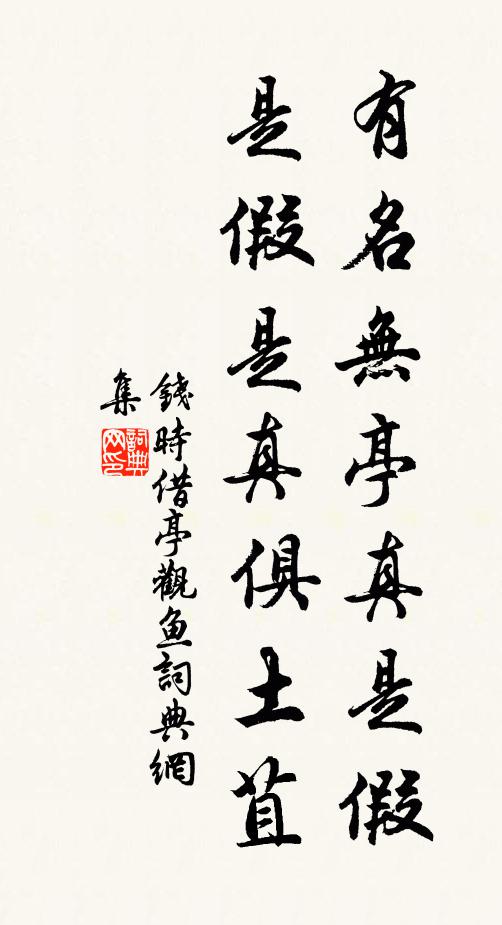 有名無亭真是假
是假是真俱土苴
錢時借亭觀魚詞典網
集
詞典
网印